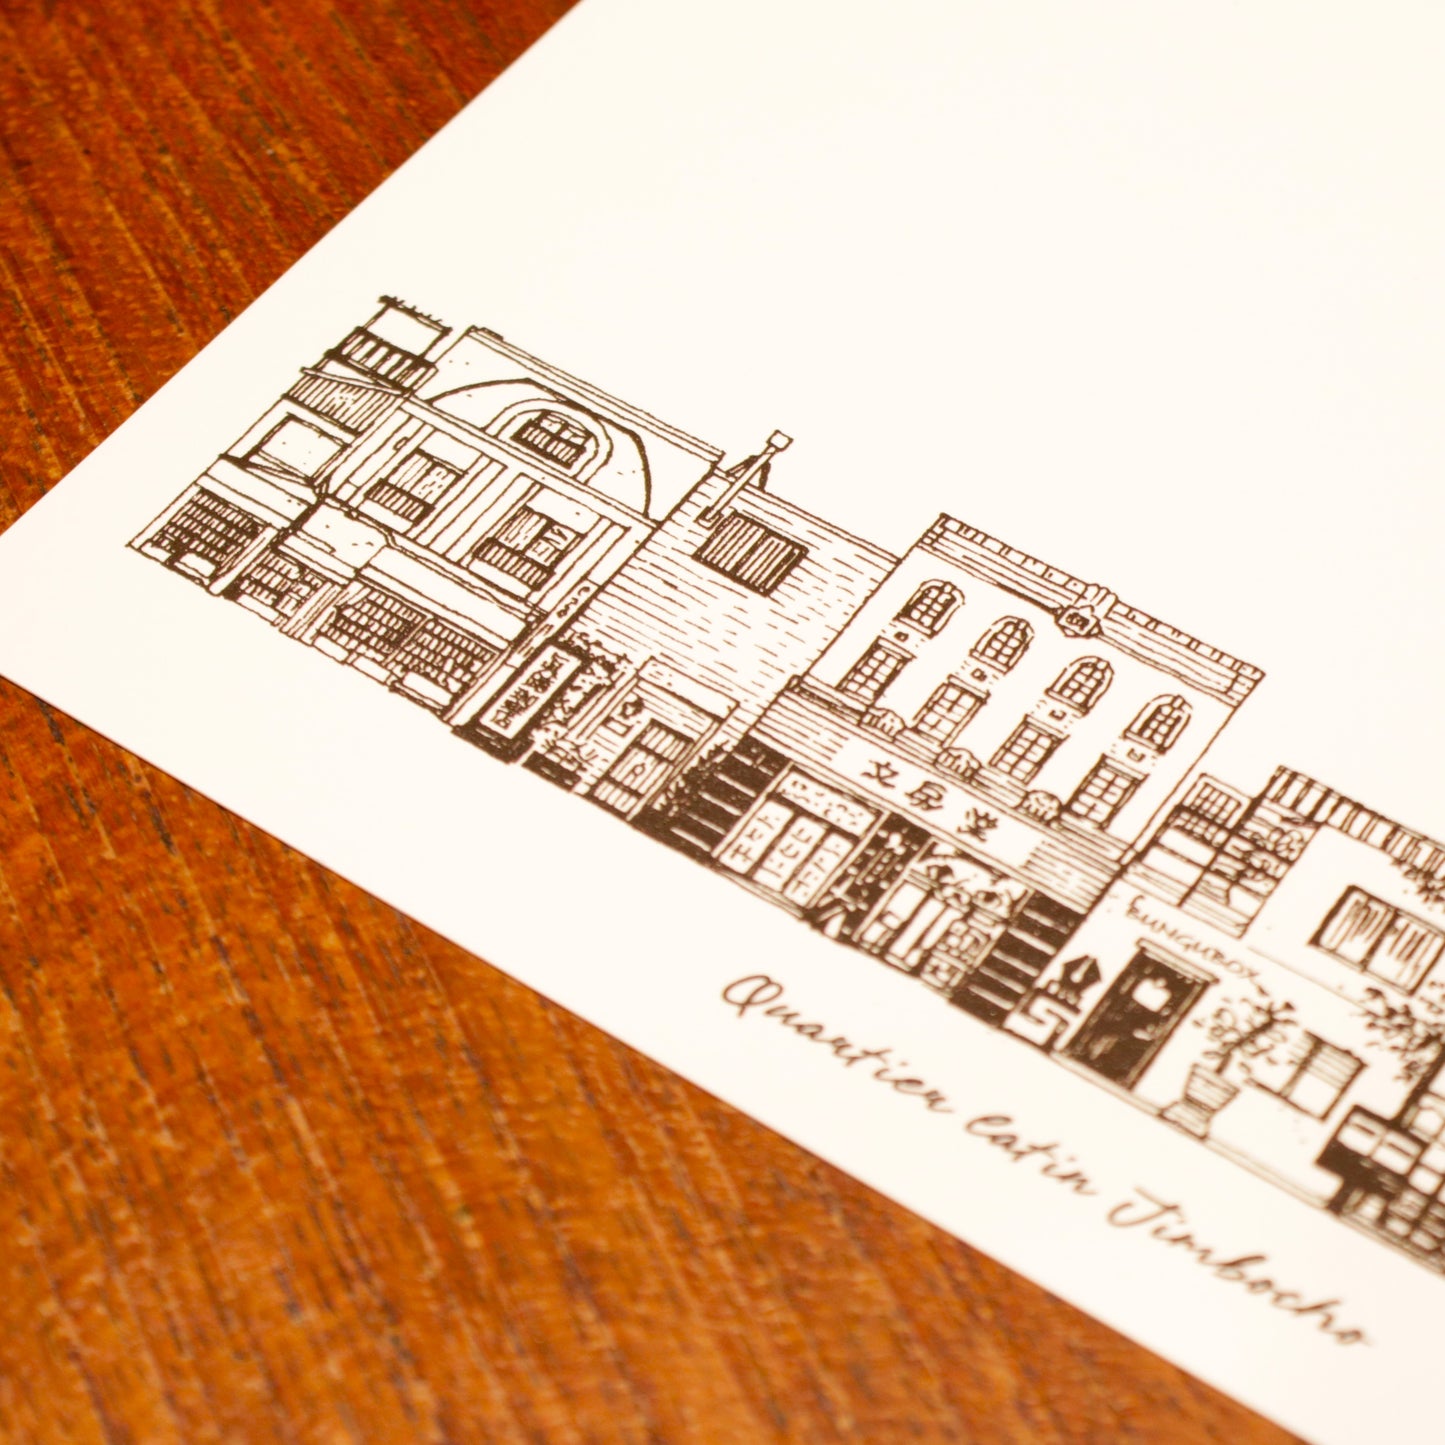 文房堂
BUNGUBOX
Quartier Latin Jimbocho